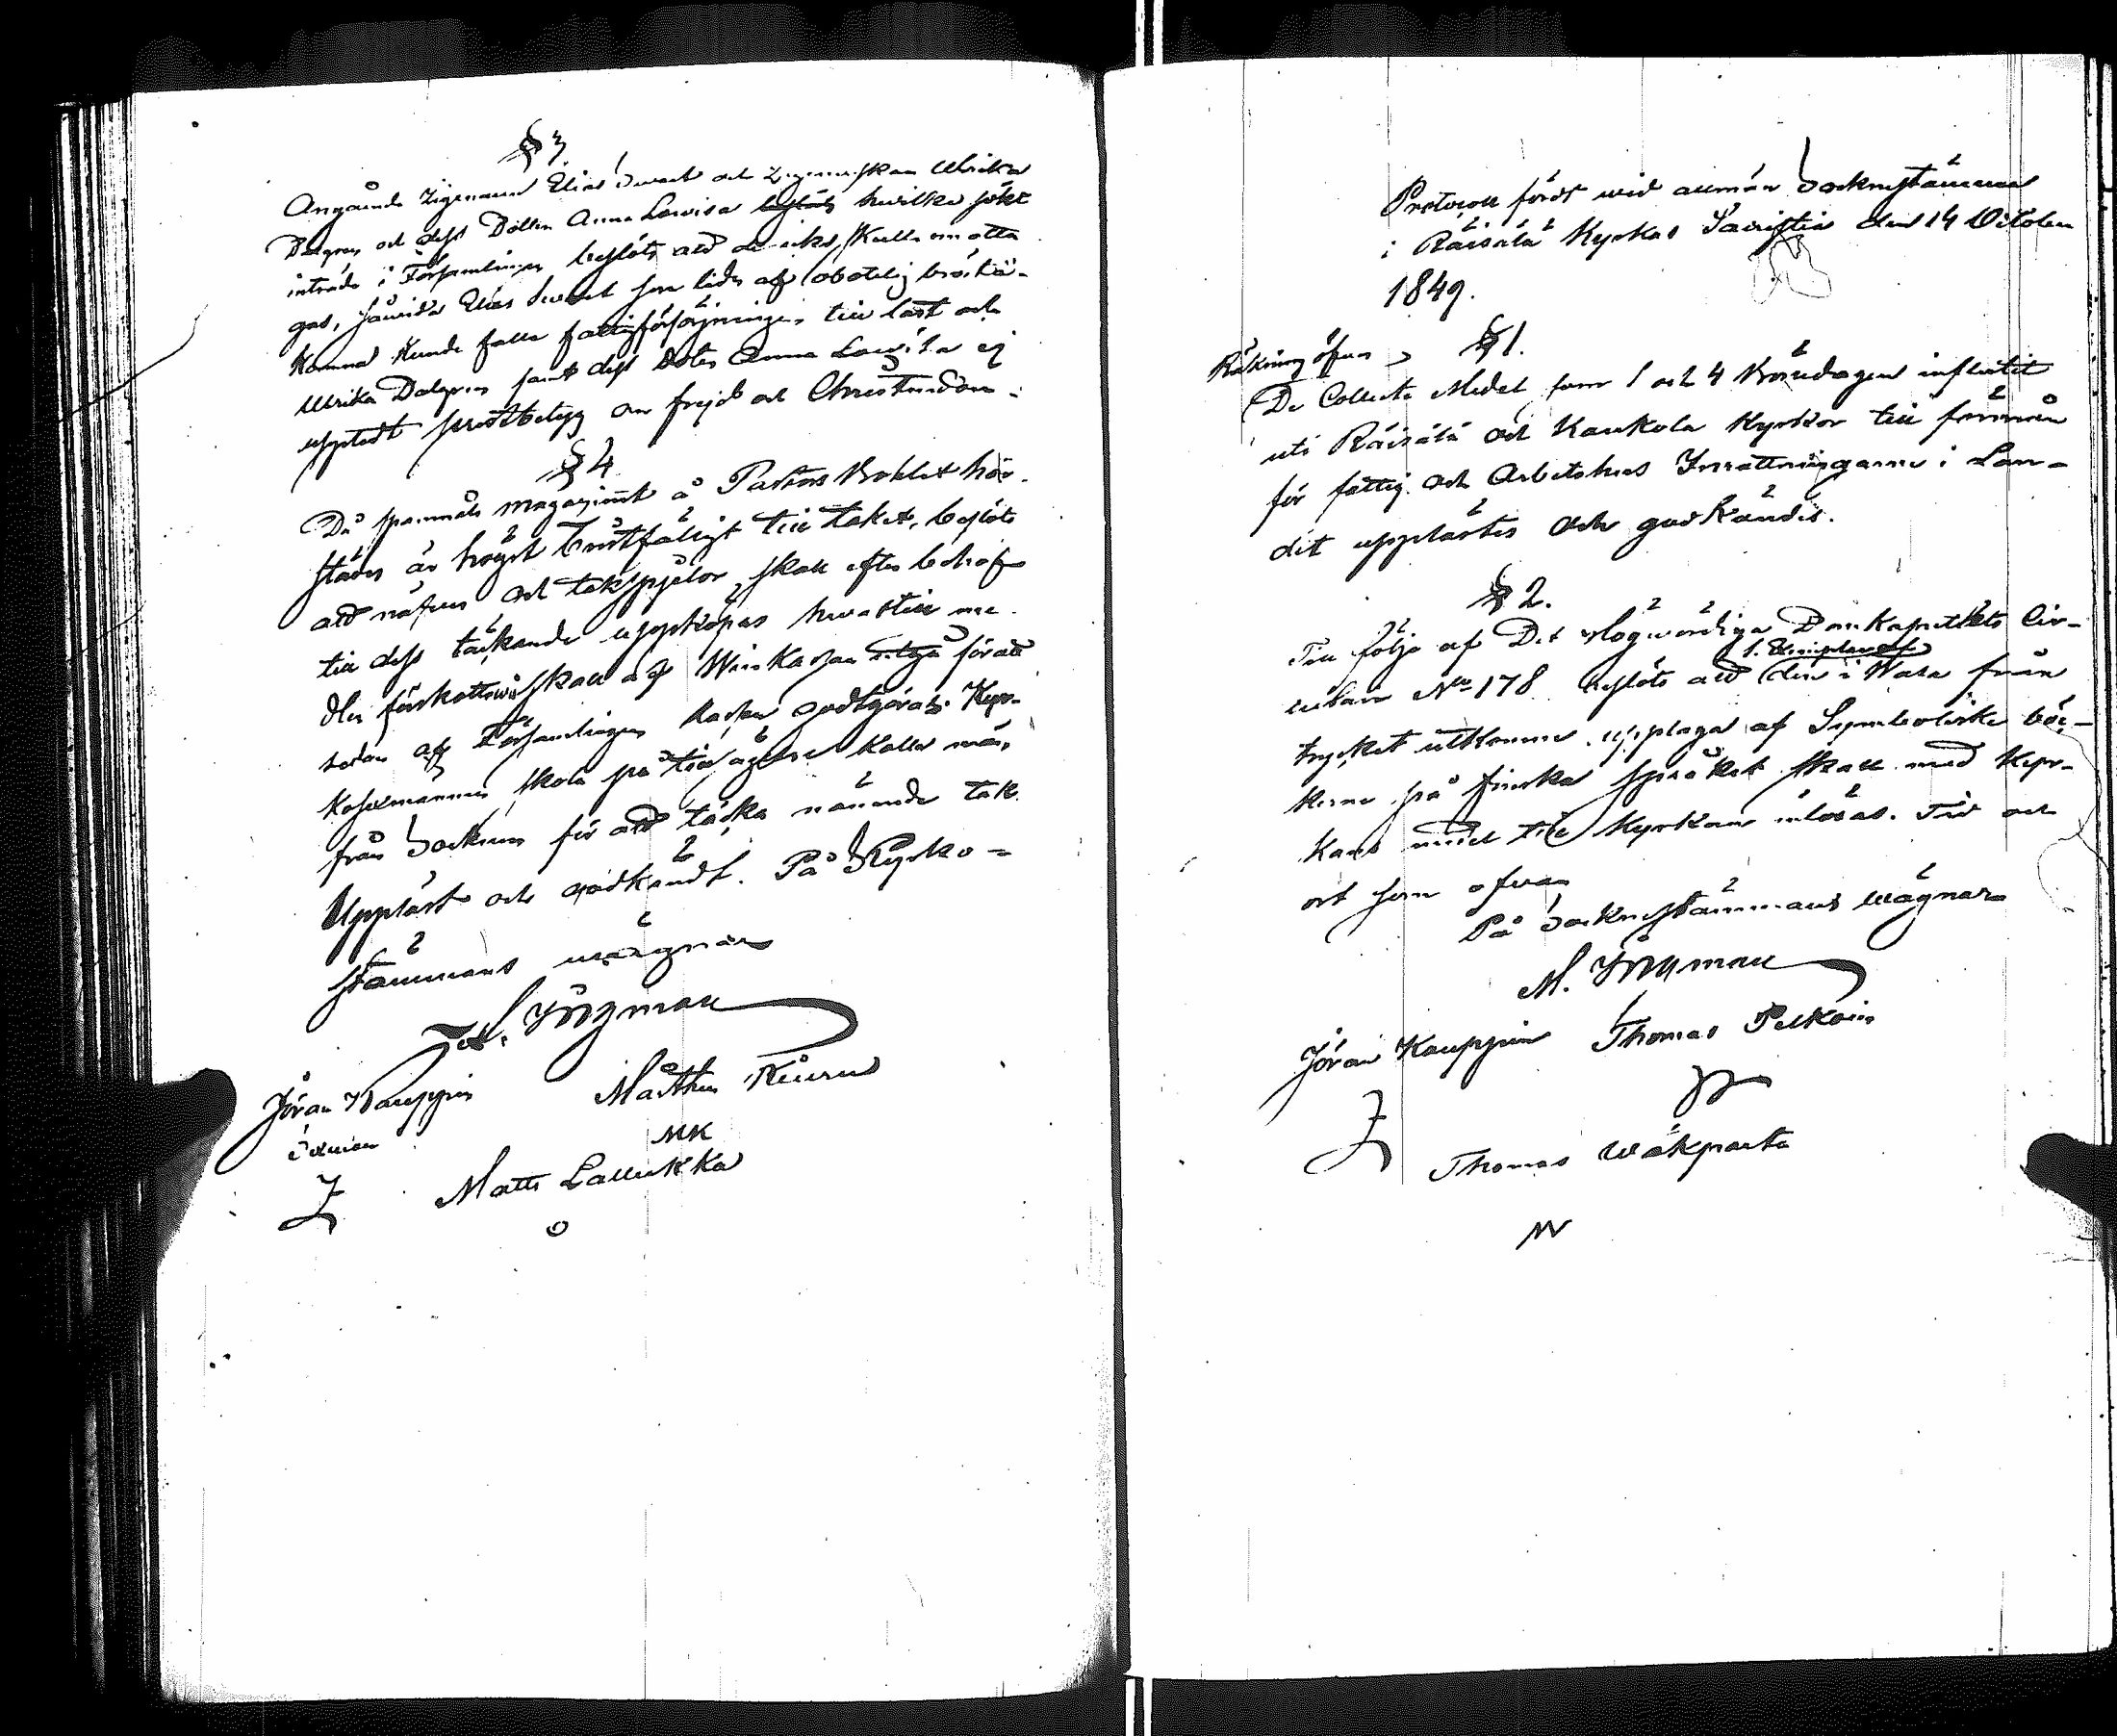 § 3
Angående Zigenaren Elias Swart och Zigenerskan Ulrika
Dalgren och dess Dotter Anna Lowisa beslöts hwilka sökt
inträde i Församlingen beslöts att de icke skulle emotta
gas, såwida Elias Swart som lider af obotelig bråck
komma kunde falla fattigförsörjningen till last och
Ulrika Dalgren samt dess Doter Anna Lowisa ej
uppted prestbetyg om frejd och Christendom.
§ 4
Då spannmåls magazinet å Pastors Bohlet här
städes är högst bristfäligt till taket, beslöts
att näfver och takspjelor skall efter behof
till dess täckande uppköpas hwartill me-
dlen förskottswis skall af Winkassan utgå föratt
sedan af Församlingen kassan godtgöras. Kyr-
kosexmannen skola på tid ägande kalla män
från Socknen för att täcka nämnde tak.
Uppläst och godkändt. På Kyrko-
stämmans wägnar
Ingman
Jöran Kauppin Mårthen Kiuru
Sexman MK
Matts Lallukka
Protocoll fördt wid allmän Sockenstämma
i Räisälä Kyrkas Sacristia den 14 October
1849.
§ 1.
Räkning öfwer
De Collecte Medel som 1 och 4 Bönedagen influtit
uti Räisälä och Kaukola Kyrkor till förmån
för fattig och Arbetshus Inrättningarne i Lan-
det upplästes och godkändes.
§ 2.
Till följe af Det Högwördiga Domkapitlets Cir-
1. Exemplar af
culair No 178 beslöts att den i Wasa från
trycket utkomne upplaga af Symboliske böc-
kerne på finska språket skall med Kyr-
kans medel till Kyrkan inlösas. Tid och
ort som ofwan
På Sockenstämmans wägnar
M. Ingman
Jöran Kauppin Thomas Pelkoin
Thomas Wäkiparta